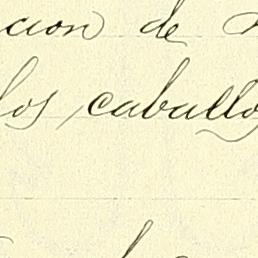 cion de
los caballos